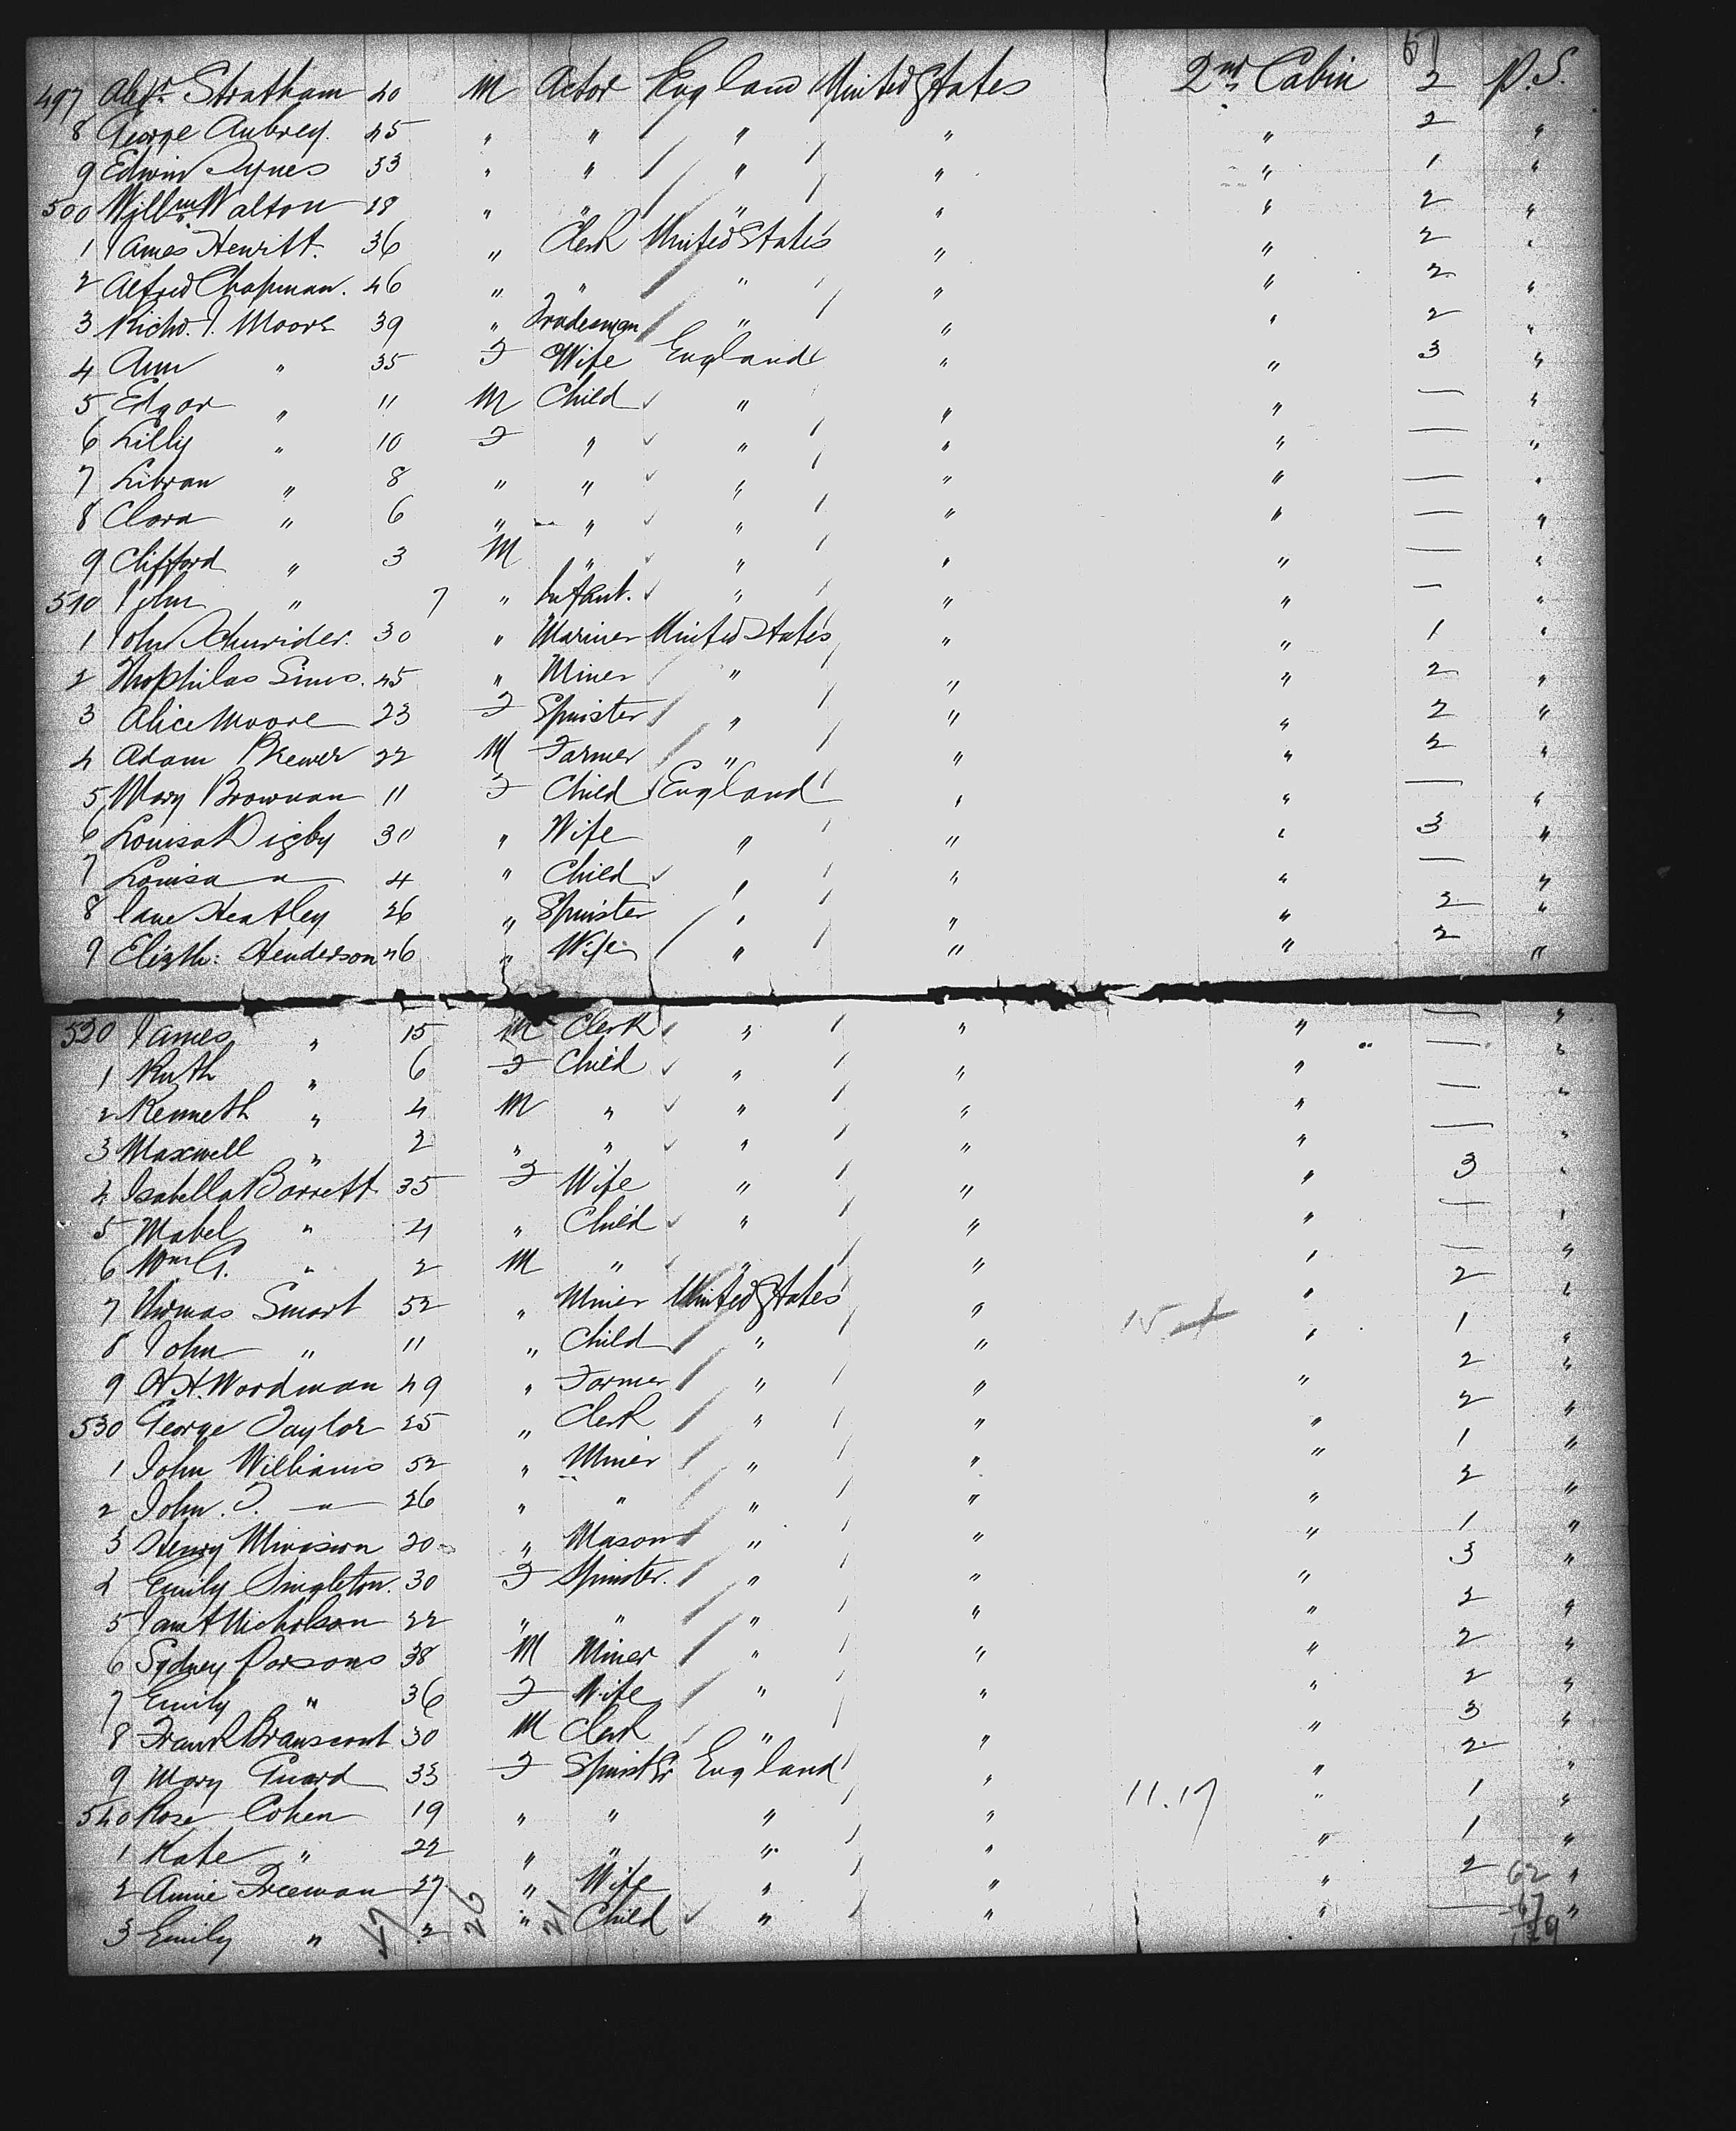 61
497 Alexr. Stratham 40 M Actor England United States 2nd Cabin 2 P.S.
8 George Aubrey. 45 " " " " " 2 "
9 Edwin 53 " " " " " 1 "
500 Willm. Walton 28 " " " " " 2 "
1 James Hewitt. 36 " Clerk United States " " 2 "
2 Alfred Chapman. 46 " " " " " 2 "
3 Richd. J. Moore 39 " Tradesman " " " 2 "
4 Ann " 35 F Wife England " " 3 "
5 Edgar " 11 M Child " " " — "
6 Lilly " 10 F " " " " — "
7 " 8 " " " " " — "
8 Clara " 6 " " " " " — "
9 Clifford " 3 M " " " " — "
510 John " 7 " Infant. " " " — "
1 John Schneider. 30 " Mariner United States " " 1 "
2 Thophilas Sims. 45 " Miner " " " 2 "
3 Alice Moore 23 F Spinster " " " 2 "
4 Adam Brewer 22 M Farmer " " " 2 "
5 Mary Brownan 11 F Child England " " — "
6 Louisa Digby 30 " Wife " " " 3 "
7 Louisa " 4 " Child " " " — "
8 Jane Heatley 26 " Spinster " " " 2 "
9 Elizth: Henderson 46 " Wife " " " 2 "
520 James " 15 M Clerk " " " — "
1 Ruth " 6 F Child " " " — "
2 Kenneth " 4 M " " " " — "
3 Maxwell " 2 " " " " " — "
4 Isabella Barrett 35 F Wife " " " 3 "
5 Mabel " 4 " Child " " " — "
6 Wm G. " 2 M " " " " — "
7 Thomas Smart 52 " Miner United States " " 2 "
8 John " 11 " Child " " " 1 "
9 H. Woodman 49 " Farmer " " " 2 "
530 George Taylor 25 " Clerk " " " 2 "
1 John Williams 52 " Miner " " " 1 "
2 John. T. " 26 " " " " " 2 "
3 Henry 20 " Mason " " " 1 "
4 Emily Singleton. 30 F Spinster. " " " 3 "
5 Janet Nicholson 22 " " " " " 2 "
6 Sydney Parsons 38 M Miner " " " 2 "
7 Emily " 36 F Wife " " " 2 "
8 Frank Branscont 30 M Clerk " " " 3 "
9 Mary Guard 33 F Spinster England " " 2 "
540 Rose Cohen 19 " " " " 11.17 " 1 "
1 Kate " 22 " " " " " 1 "
2 Annie Freeman 27 " Wife " " " 2 "
3 Emily " 2 " Child " " " — "
47 26 21
62
67
129